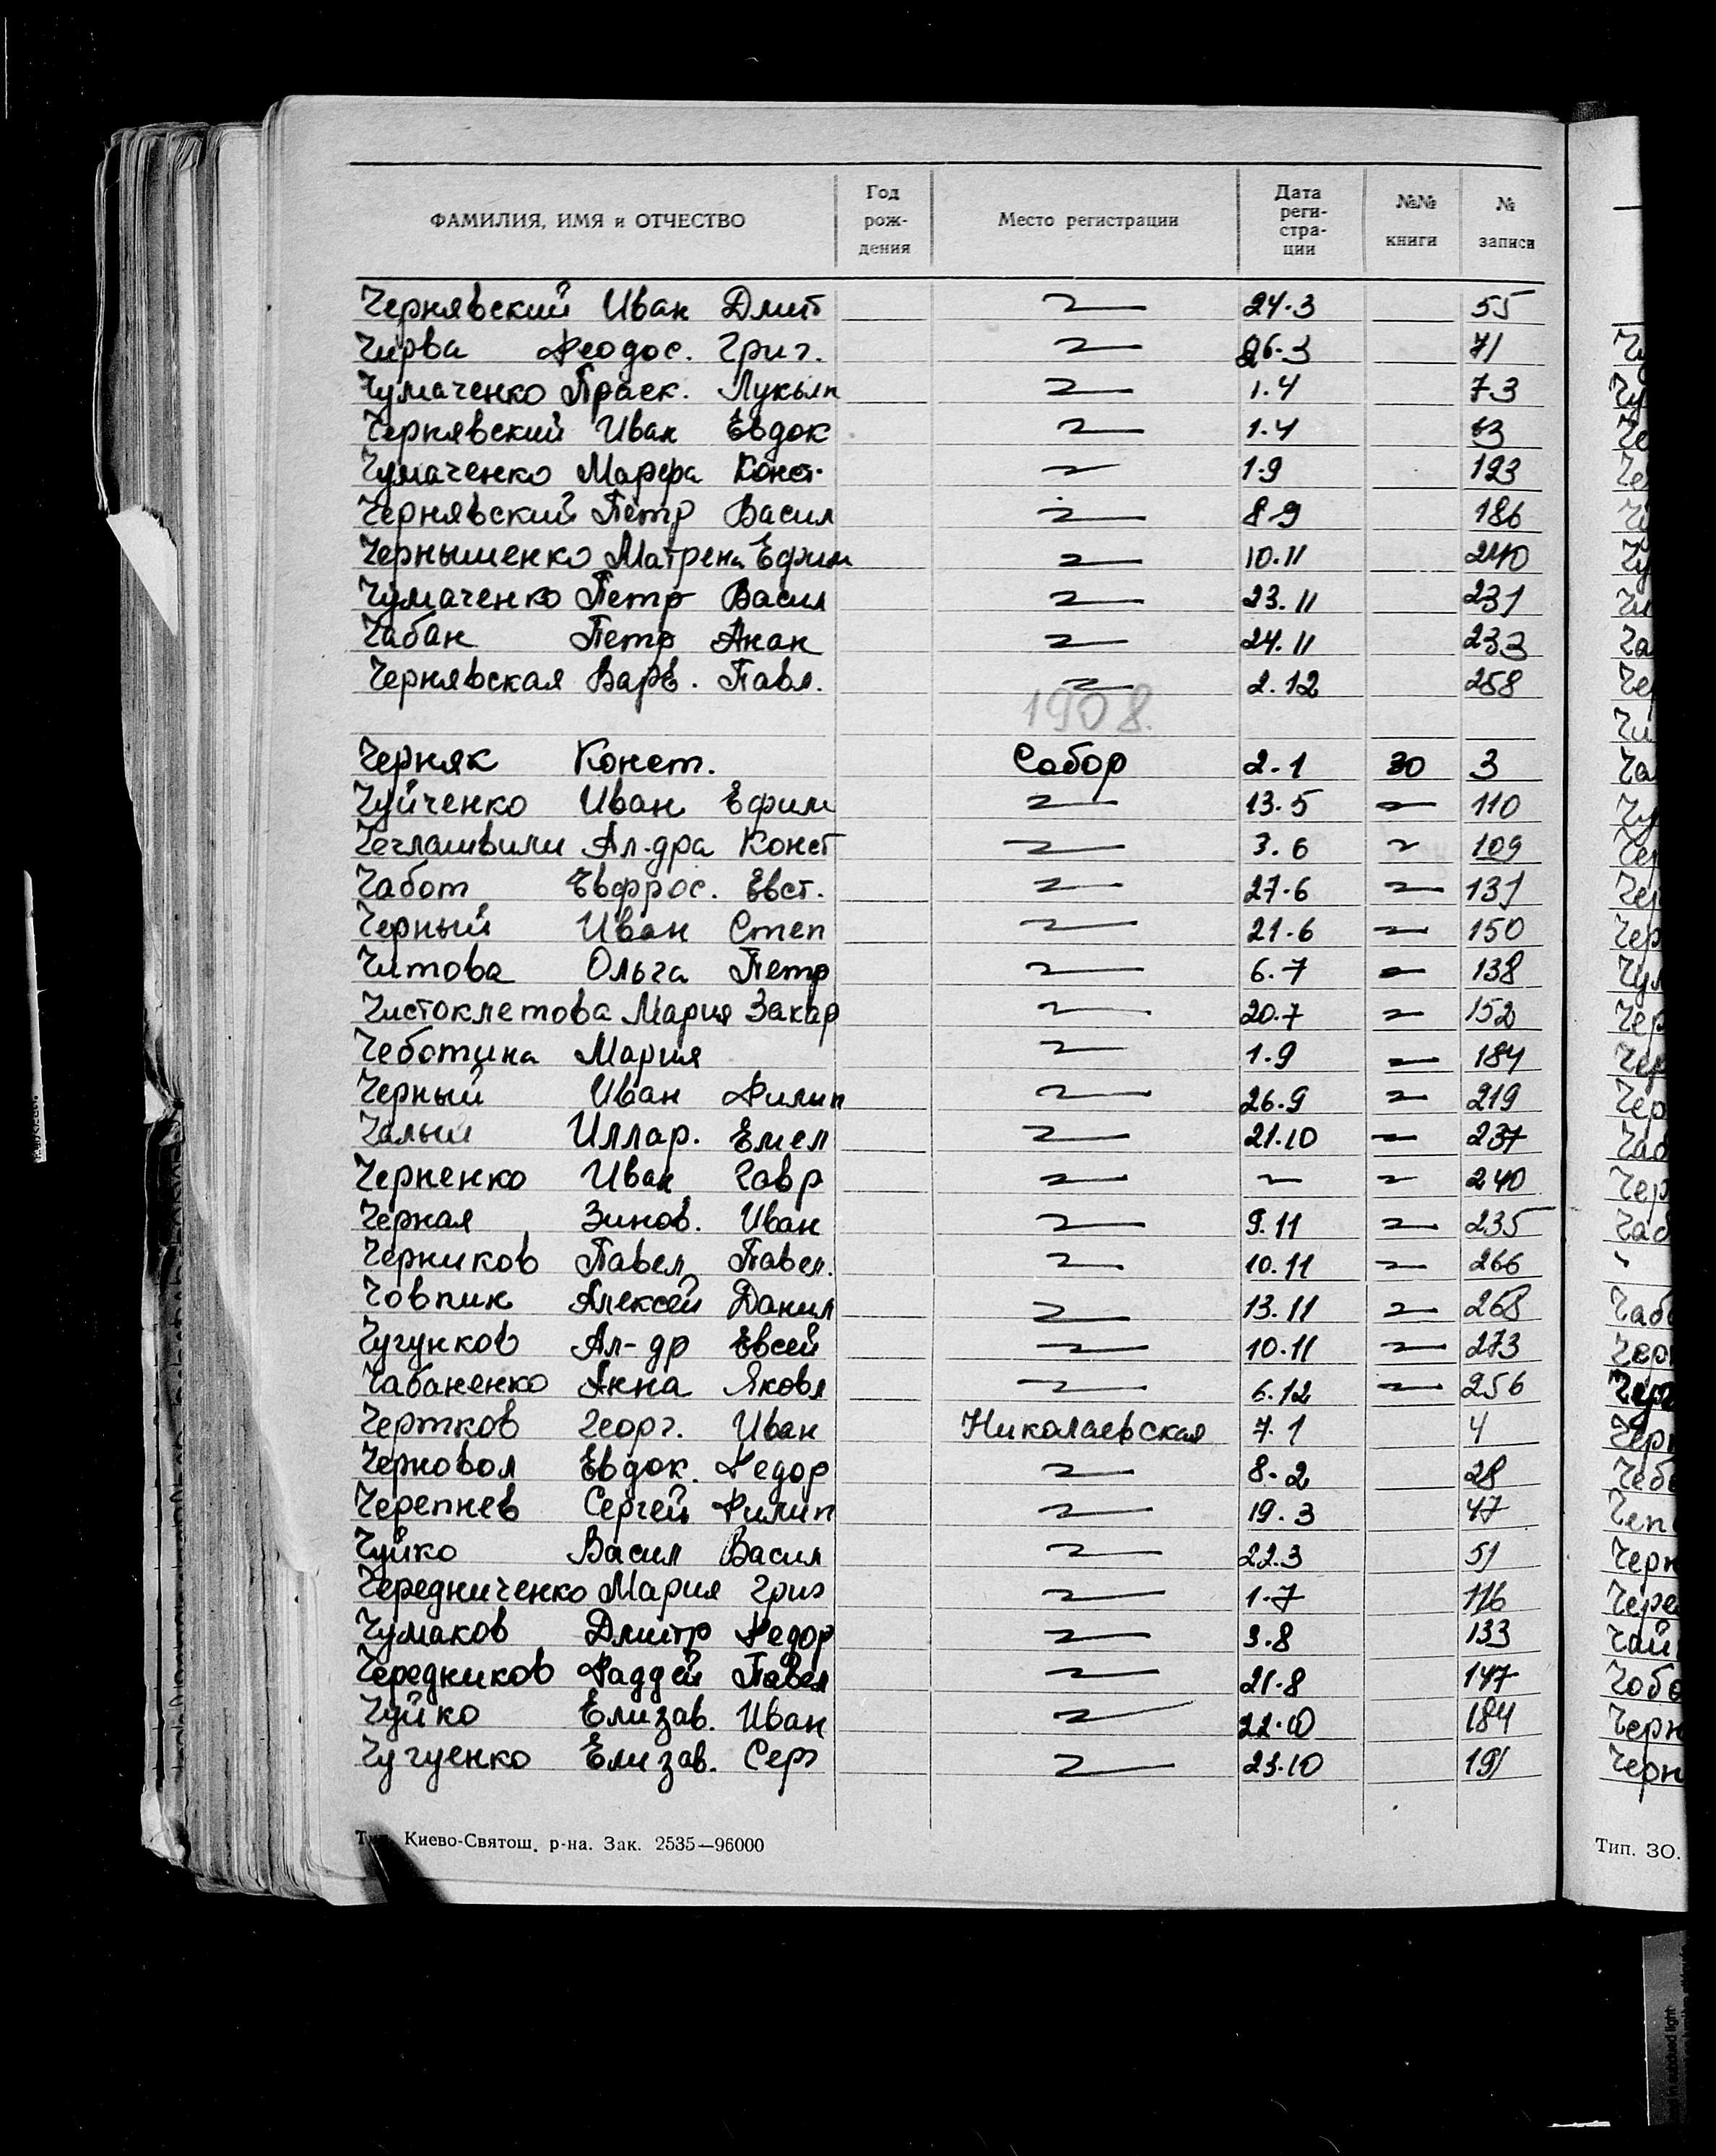 ФАМИЛИЯ, ИМЯ и ОТЧЕСТВО Год рож- дения Место регистрации Дата реги- стра- ции №№ книги № записи
Чернявский Иван Дмит 24.3 55
Чирва Феодос. Григ. 26.3 71
Чумаченко Праск. Лукьян 1.4 73
Чернявский Иван Евдок 1.4
Чумаченко Марфа Конст. 1.9 123
Чернявский Петр Васил 8.9 186
Чернышенко Матрена Ефим 10.11 240
Чумаченко Петр Васил 23.11 231
Чабан Петр Анан 24.11 233
Чернявская Варв. Павл. 2.12 258
1908.
Черняк Конст. Собор 2.1 30 3
Чуйченко Иван Ефим 13.5 110
Чеглашвили Ал-дра Конст 3.6 109
Чабот Евфрос. Евст. 27.6 131
Черный Иван Степ 21.6 150
Читова Ольга Петр 6.7 138
Чистоклетова Мария Захар 20.7 152
Чеботина Мария 1.9 184
Черный Иван Филип 26.9 219
Чалый Иллар. Емел 21.10 237
Черненко Иван Гавр 240
Черная Зинов. Иван 9.11 235
Черников Павел Павел. 10.11 266
Човпик Алексей Данил 13.11 268
Чугунков Ал-др Евсей 10.11 273
Чабаненко Анна Яковл 6.12 256
Чертков Георг. Иван Николаевская 7.1 4
Черновол Евдок. Федор 8.2 28
Черепнев Сергей Филип 19.3 47
Чуйко Васил Васил 22.3 51
Чередниченко Мария Григ 1.7 116
Чумаков Дмитр Федор 3.8 133
Чередников Фаддей Павел 21.8 147
Чуйко Елизав. Иван 22.10 184
Чугуенко Елизав. Серг 23.10 191
Киево-Святош. р-на. Зак. 2535—96000
Тип. ЗО.